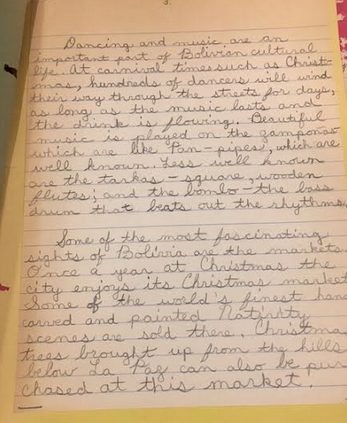 3.
Dancing and music are an
important part of Bolivian cultural
life. At carnival times such as Christ-
mas, hundreds of dancers will wind
their way through the streets for days,
as long as the music lasts and
the drink is flowing. Beautiful
music is played on the zamponas
which are like Pan-pipes, which are
well known. Less well known
are the tarkas - square, wooden
flutes; and the bombo - the bass
drum that beats out the rhythms.
Some of the most fascinating
sights of Bolivia are the markets.
Once a year at Christmas the
city enjoys its Christmas market
Some of the world's finest hand
carved and painted Nativity
scenes are sold there. Christma
trees brought up from the hills
below La Paz can also be pur
chased at this market.